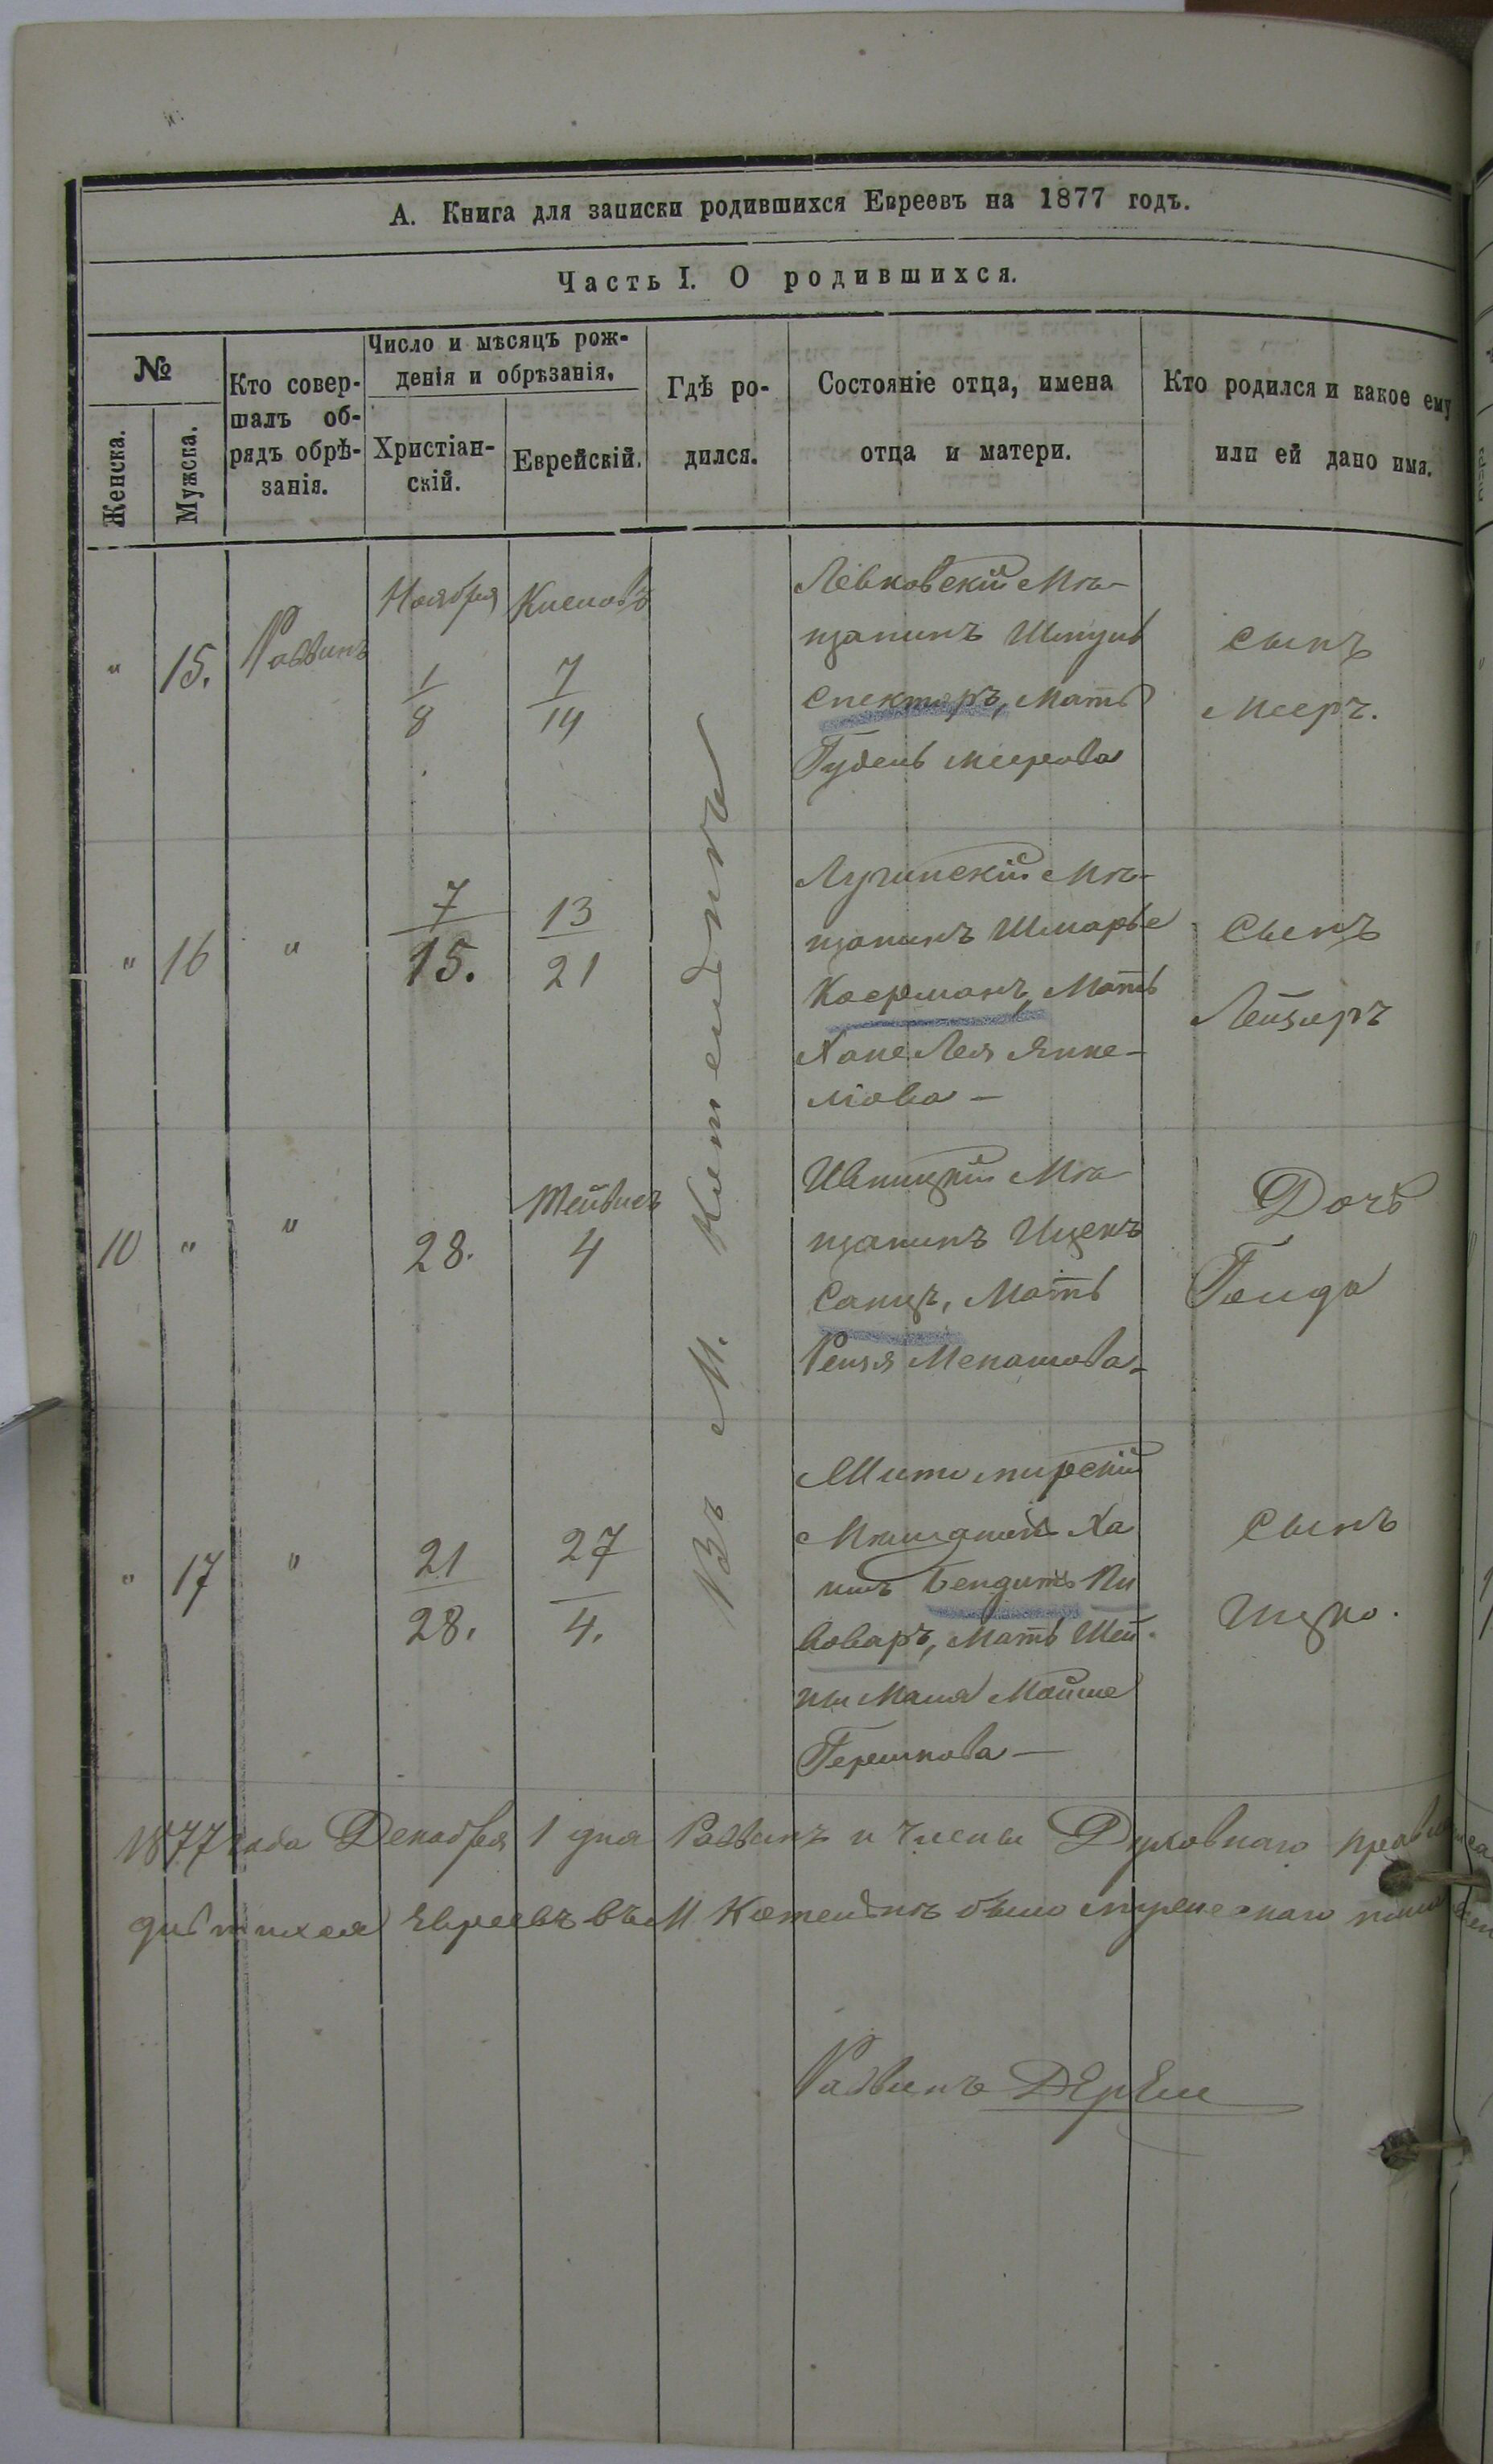 А. Книга для записки родившихся Евреевъ на 1877 годъ.
Часть I. О родившихся.
№
Женска.
Мужска.
Кто совер-
шалъ об-
рядъ обрѣ-
занія.
Число и мѣсяцъ рож-
денія и обрѣзанія.
Христіан-
скій.
Еврейскій.
Гдѣ ро-
дился.
Состояніе отца, имена
отца и матери.
Кто родился и какое ему
или ей дано имя.
"
15.
Раввинъ
Ноября
1
8
Кислевъ
7
14
Левковскій Мѣ-
щанинъ Шмуль
Спекторъ, Мать
Гудель Меерова
сынъ
Мееръ.
"
16
"
7
15.
13
21
Лугинскій Мѣ-
щанинъ Шмарье
Косерманъ, Мать
Хане Лея Янке-
лiова —
Сынъ
Лейзеръ
10
"
"
28.
Тейвисъ
4
Ивницкій Мѣ
щанинъ Ицекъ
Сапиръ, Мать
Рейзя Менашова
Дочь
Гольда
"
17
"
21
28.
27
4.
Житомирскій
Мѣщанинъ Ха
имъ Бендитъ Пи
воваръ, Мать Шей
Маля Мойше
Гершкова —
Сынъ
Ицко.
Въ М. Котельнѣ
1877 года Декабря 1 дня Раввинъ и Члены Духовнаго
евреевъ въ М Котельнѣ было
Раввинъ